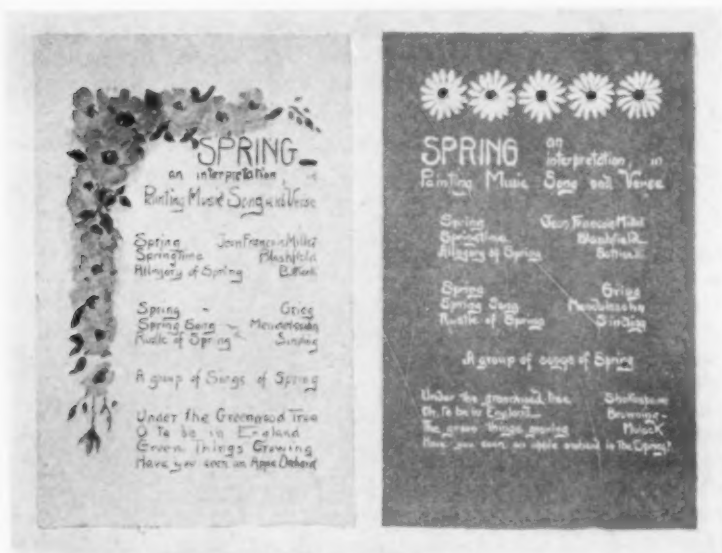 SPRING
an interpretation, in
Painting Music Song and Verse
Spring Jean Francois Millet
Springtime Blashfield
Allegory of Spring
Spring - Grieg
Spring Song Mendelssohn
Rustle of Spring Sinding
A group of Songs of Spring
Under the Greenwood Tree
O To be in England
Green Things Growing
Have you seen an Apple Orchard
SPRING an
interpretation, in
Painting Music Song and Verse
Spring Jean Francois Millet
Springtime Blashfield
Allegory of Spring
Spring Grieg
Spring Song Mendelssohn
Rustle of Spring Sinding
A group of songs of Spring
Under the greenwood tree Shakespeare
Oh, to be in England Browning
The green things growing Mulock
Have you seen an apple orchard in the Spring?